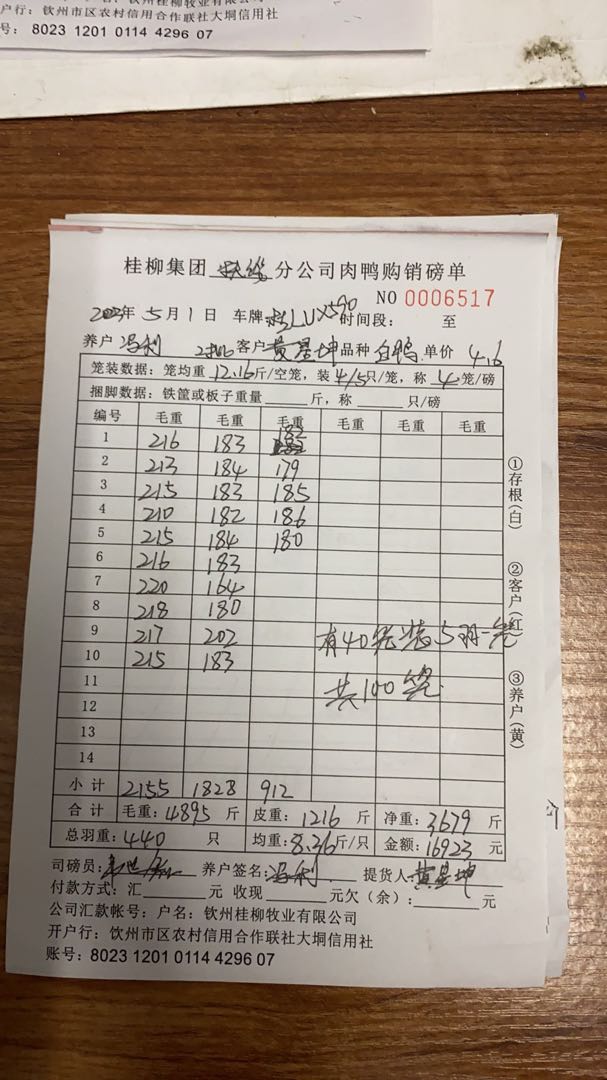 户名：钦州桂柳牧业有限公司
户行：钦州市区农村信用合作联社大垌信用社
号：8023 1201 0114 4296 07
桂柳集团 分公司肉鸭购销磅单
NO 0006517
2023年5月1日 车牌:桂LUX590 时间段： 至
养户 冯利 客户 黄星坤 品种 白鸭 单价 4.16
笼装数据：笼均重 12.16 斤/空笼，装 4/5 只/笼，称 4 笼/磅
捆脚数据：铁筐或板子重量 斤，称 只/磅
编号 毛重 毛重 毛重 毛重 毛重 毛重
1 216 183 182
2 213 184 179
3 215 183 185
4 210 182 186
5 215 184 180
6 216 183
7 220 164
8 218 180
9 217 202 有40笼装5羽一笼
10 215 183
11 共100笼
12
13
14
小计 2155 1828 912
合计 毛重：4895 斤 皮重：1216 斤 净重：3679 斤
总羽重：440 只 均重：8.36 斤/只 金额：16923 元
司磅员： 养户签名：冯利 提货人：黄星坤
付款方式：汇 元 收现 元欠（余）： 元
公司汇款帐号：户名：钦州桂柳牧业有限公司
开户行：钦州市区农村信用合作联社大垌信用社
账号：8023 1201 0114 4296 07
①存根(白)
②客户(红)
③养户(黄)